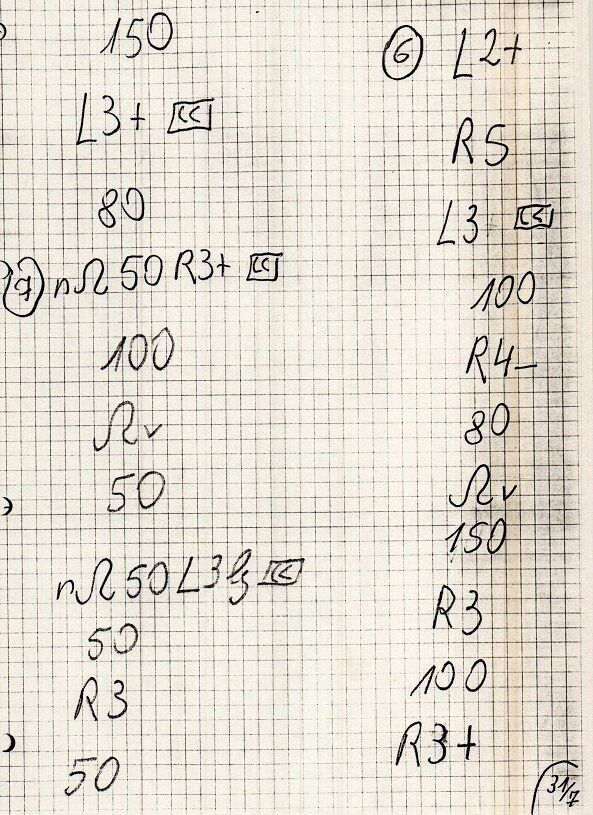 150
L3+ [<<]
80
7 nΩ 50 R3+ [<<]
100
Ωv
50
nΩ 50 L3 [<<]
50
R3
50
6 L2+
R5
L3 [<<]
100
R4-
80
Ωv
150
R3
100
R3+
31/7